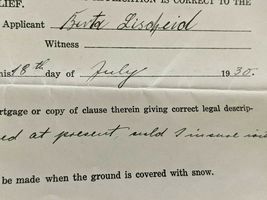 LIEF.
IS CORRECT TO THE
Applicant Berta
Witness
his 18th day of July 1930.
rtgage or copy of clause therein giving correct legal descrip-
ed at present, would insure
be made when the ground is covered with snow.